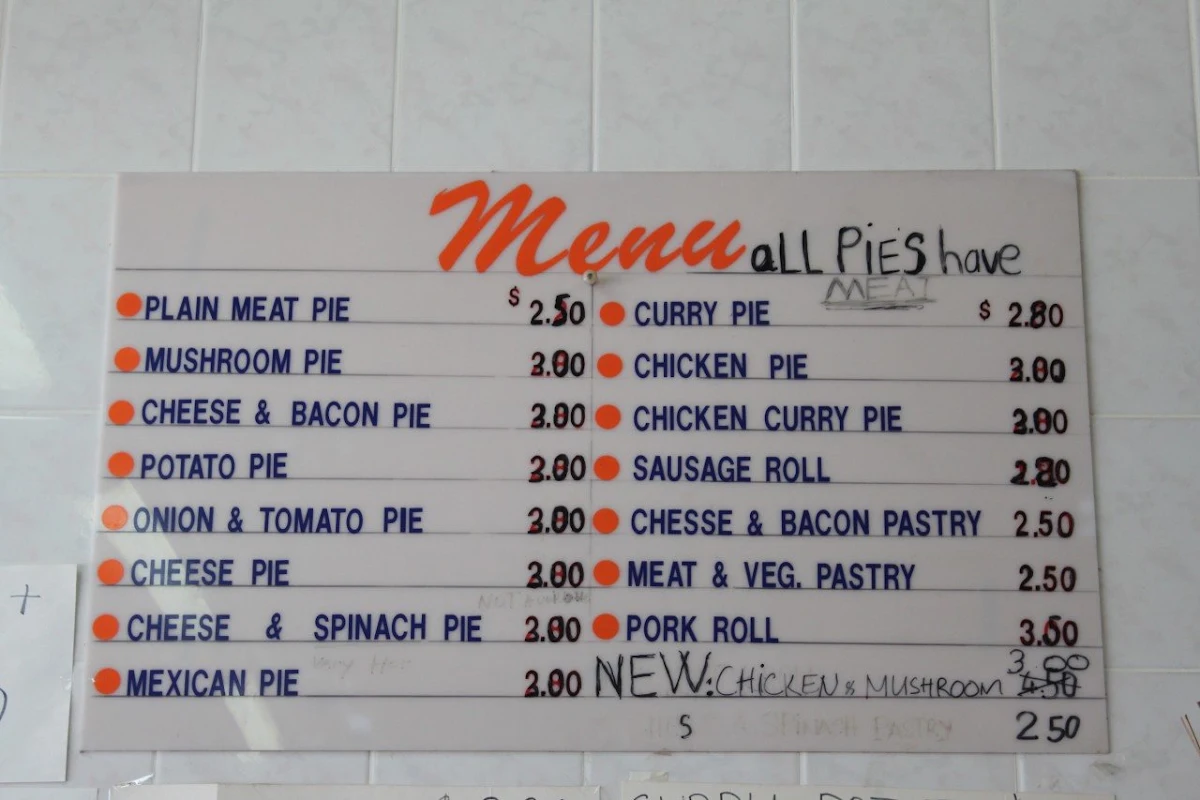 Menu all PiES have
MEAT
PLAIN MEAT PIE $ 2.50
MUSHROOM PIE 3.00
CHEESE & BACON PIE 3.00
POTATO PIE 3.00
ONION & TOMATO PIE 3.00
CHEESE PIE 3.00
CHEESE & SPINACH PIE 3.00
MEXICAN PIE 3.00
CURRY PIE $ 2.80
CHICKEN PIE 3.00
CHICKEN CURRY PIE 3.00
SAUSAGE ROLL
CHESSE & BACON PASTRY 2.50
MEAT & VEG. PASTRY 2.50
PORK ROLL 3.50
NEW: CHiCKEN & MUSHROOM 3.00
S & SPINASH PASTRY 2 50